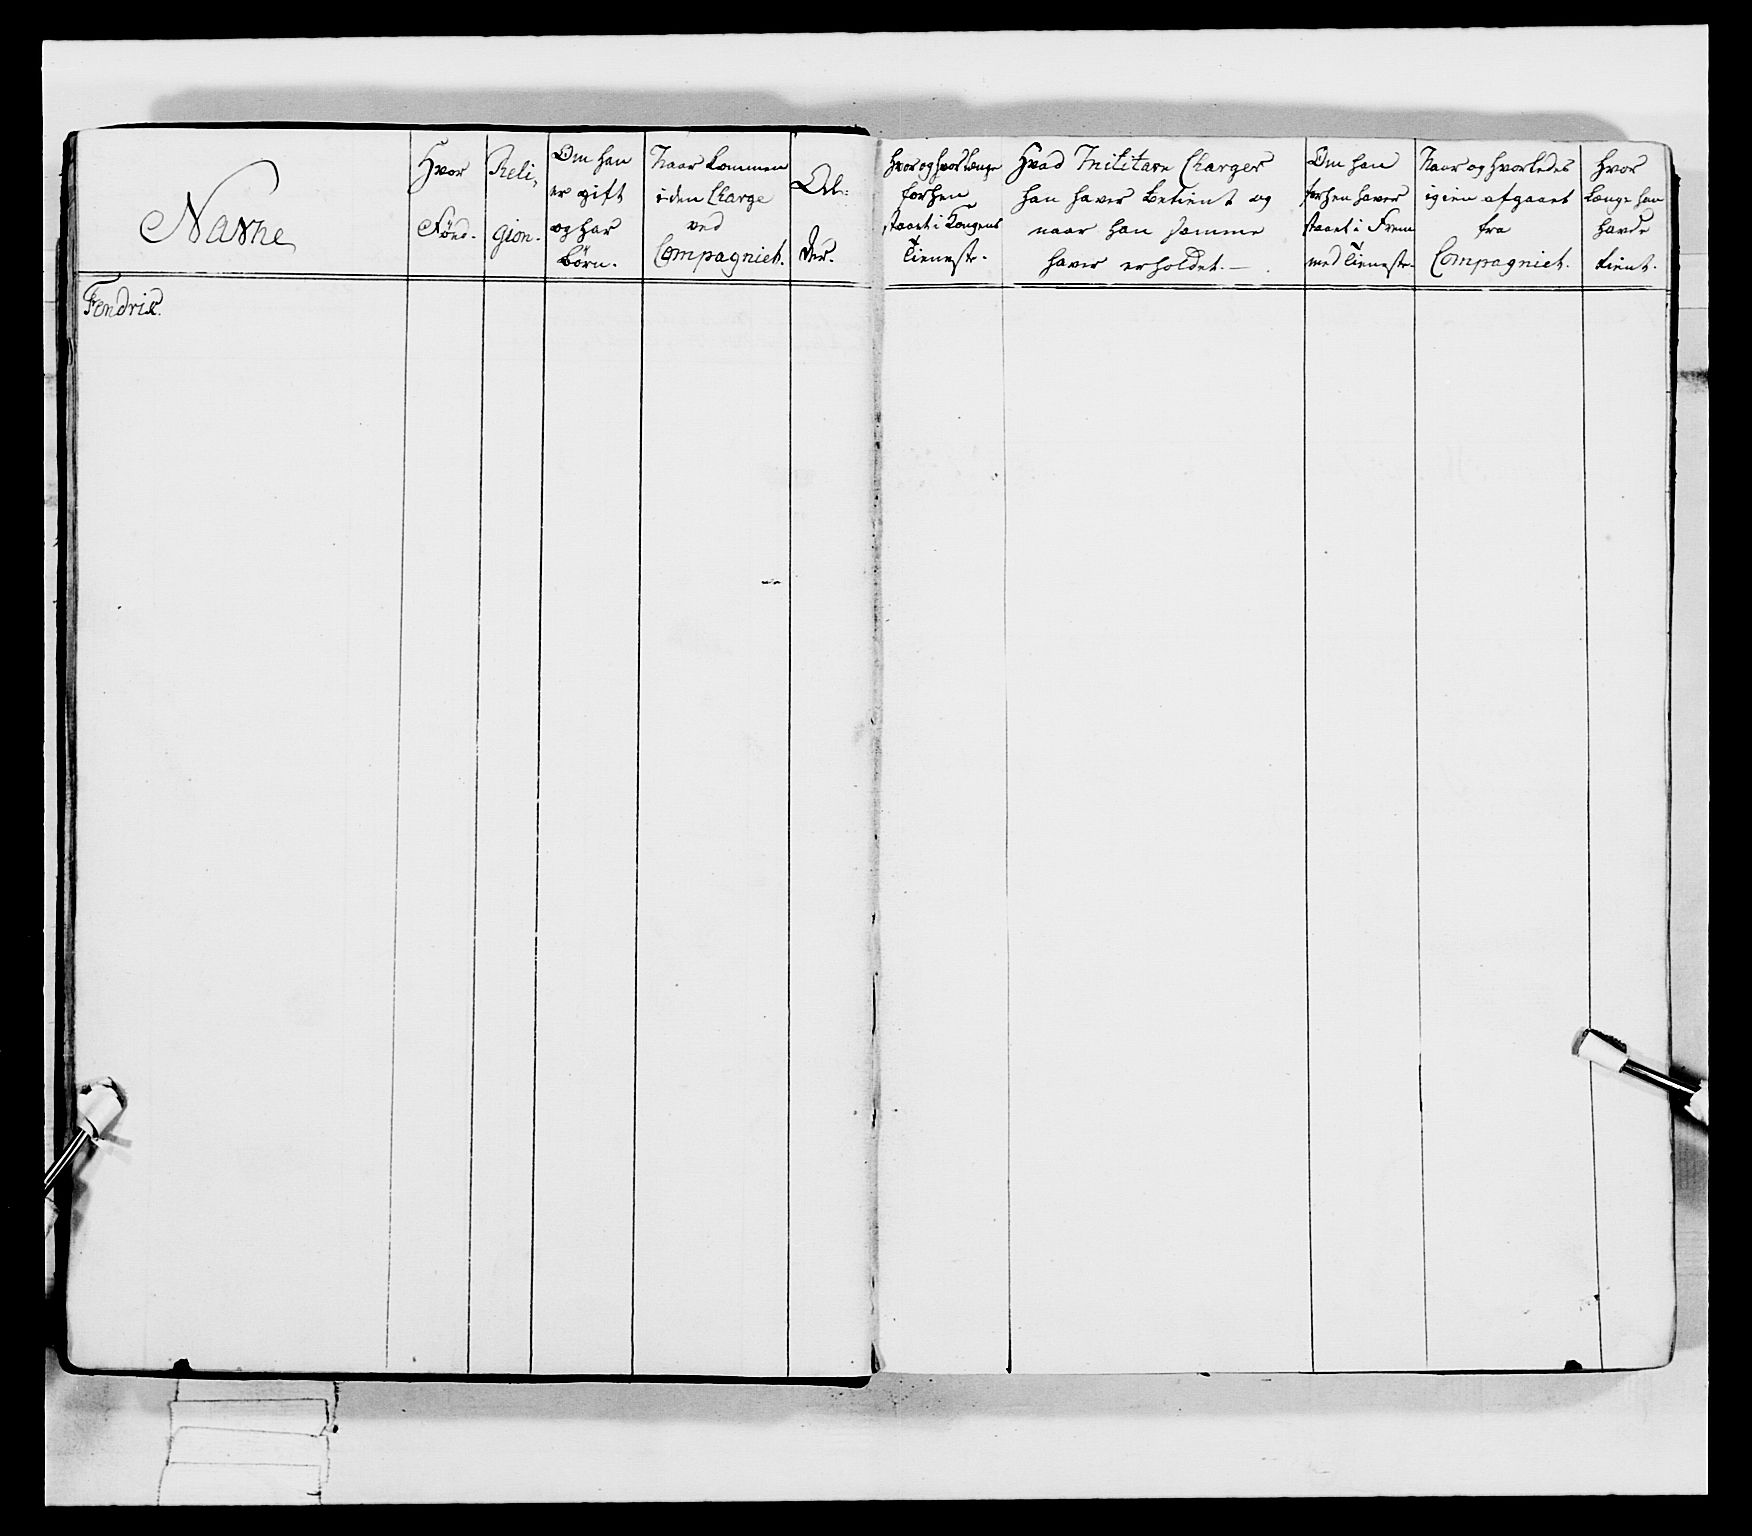 Navne
Hvor
Född.
Reli,
gion.
Om han
er gift
og har
Börn.
Naar kommen
i den Charge
ved
Compagniet.
Al:
der.
Hvor og hvorlænge
forhen
staaet i Kongens
Tieneste.
Hvad Militaire Charger
han haver betient og
naar han samme
haver erholdet.
Om han
forhen haver
staaet i Frem
med Tieneste.
Naar og hvorledes
igien afgaaet
fra
Compagniet.
Hvor
længe han
havde
tient.
Fendric.